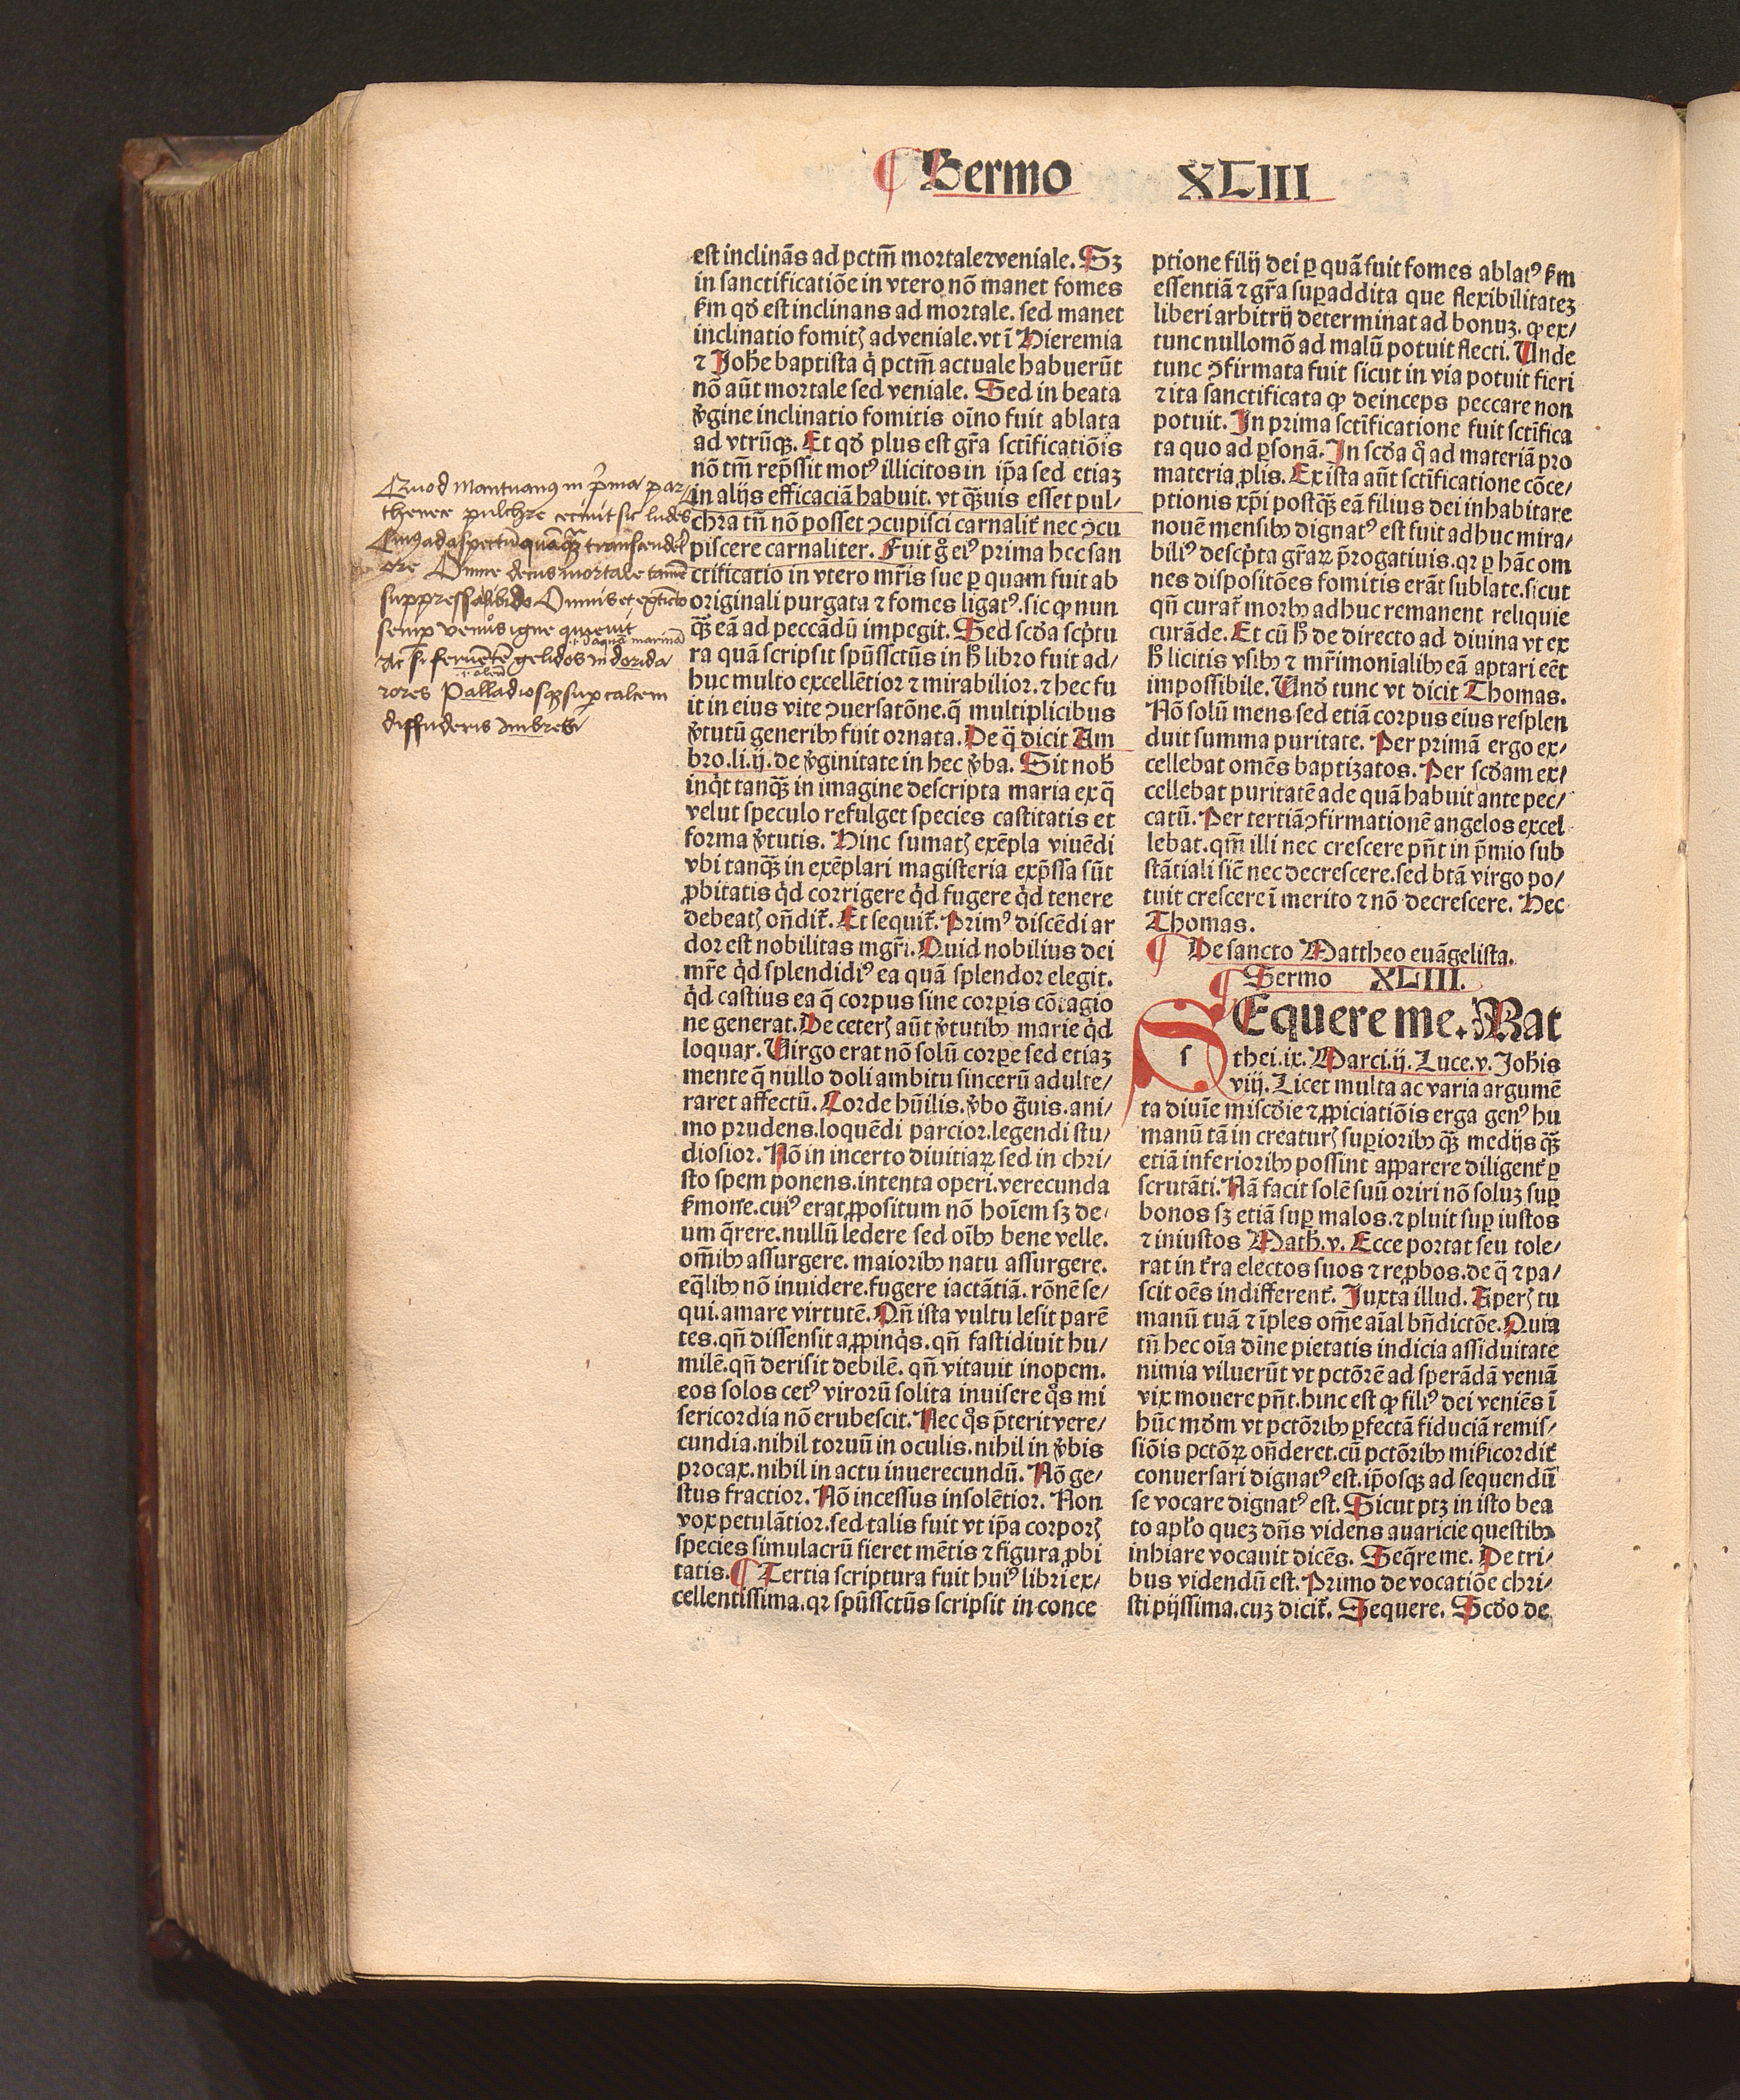 Sermo XLIII
est inclinãs ad pctm̃ mortale ⁊ veniale. Sꝫ
in sanctificatiõe in vtero nõ manet fomes
ẜm qđ est inclinans ad mortale. sed manet
inclinatio fomitꝭ ad veniale. vt ĩ Hieremia
⁊ Joh̃e baptista q̇ pctm̃ actuale habuerũt
nõ aũt mortale sed veniale. Sed in beata
ꝟgine inclinatio fomitis oĩno fuit ablata
ad vtrũqꝫ. Et qđ plus est gr̃a sctĩficatiõis
nõ tm̃ rep̃ssit motꝰ illicitos in ip̃a sed etiaꝫ
in alijs efficaciã habuit. vt qꝫ̃uis esset pul/
chra tñ nõ posset ↄcupisci carnalit̃ nec ↄcu
piscere carnaliter. Fuit g̊ eiꝰ prima hec san
ctificatio in vtero mr̃is sue ꝑ quam fuit ab
originali purgata ⁊ fomes ligatꝰ. sic ꝙ nun
qꝫ̃ eã ad peccãdũ impegit. Sed scđa scp̃tu
ra quã scripsit spũssctũs in h̊ libro fuit ad/
huc multo excellẽtior ⁊ mirabilior. ⁊ hec fu
it in eius vite ↄuersatõne. q̃ multiplicibus
ꝟtutũ generibꝰ fuit ornata. De q̃ dicit Am
bro. li. ij. de ꝟginitate in hec ꝟba. Sit nob̃
inq̇t tanqꝫ̃ in imagine descripta maria ex q̃
velut speculo refulget species castitatis et
forma ꝟtutis. Hinc sumatꝭ exẽpla viuẽdi
vbi tanqꝫ̃ in exẽplari magisteria exp̃ssa sũt
ꝓbitatis q̇d corrigere q̇d fugere q̇d tenere
debeatꝭ oñdit̃. Et sequit̃. Primꝰ discẽdi ar
dor est nobilitas mgr̃i. Quid nobilius dei
mr̃e q̇d splendidiꝰ ea quã splendor elegit.
q̇d castius ea q̃ corpus sine corꝑis cõtagio
ne generat. De ceterꝭ aũt ꝟtutibꝰ marie q̇d
loquar. Uirgo erat nõ solũ corꝑe sed etiaꝫ
mente q̃ nullo doli ambitu sincerũ adulte/
raret affectũ. Corde hũilis. ꝟbo g̃uis. ani/
mo prudens. loquẽdi parcior. legendi stu/
diosior. Nõ in incerto diuitiaꝝ sed in chri/
sto spem ponens. intenta operi. verecunda
ẜmone. cuiꝰ erat ꝓpositum nõ hoĩem sꝫ de/
um q̃rere. nullũ ledere sed oĩbꝰ bene velle.
om̃ibꝰ assurgere. maioribꝰ natu assurgere.
eq̃libꝰ nõ inuidere. fugere iactãtiã. rõnẽ se/
qui. amare virtutẽ. Qñ ista vultu lesit parẽ
tes. qñ dissensit a ꝓpinq̇s. qñ fastidiuit hu/
milẽ. qñ derisit debilẽ. qñ vitauit inopem.
eos solos cetꝰ virorũ solita inuisere q̊s mi
sericordia nõ erubescit. Nec q̊s p̃terit vere/
cundia. nihil toruũ in oculis. nihil in ꝟbis
procax. nihil in actu inuerecundũ. Nõ ge/
stus fractior. Nõ incessus insolẽtior. Non
vox petulãtior. sed talis fuit vt ip̃a corporꝭ
species simulacrũ fieret mẽtis ⁊ figura ꝓbi
tatis. ¶ Tertia scriptura fuit huiꝰ libri ex/
cellentissima. qꝛ spũssctũs scripsit in conce
ptione filij dei ꝑ quã fuit fomes ablatꝰ ẜm
essentiã ⁊ gr̃a suꝑaddita que flexibilitateꝫ
liberi arbitrij determinat ad bonuꝫ. ꝙ ex/
tunc nullomõ ad malũ potuit flecti. Unde
tunc ↄfirmata fuit sicut in via potuit fieri
⁊ ita sanctificata ꝙ deinceps peccare non
potuit. In prima sctĩficatione fuit sctĩfica
ta quo ad ꝑsonã. In scđa q̊ ad materiã pro
materia ꝓlis. Ex ista aũt sctĩficatione cõce/
ptionis xp̃i postqꝫ̃ eã filius dei inhabitare
nouẽ mensibꝰ dignatꝰ est fuit adhuc mira/
biliꝰ descp̃ta gr̃aꝝ p̃rogatiuis. qꝛ ꝑ hãc om
nes dispositões fomitis erãt sublate. sicut
qñ curat̃ morbꝰ adhuc remanent reliquie
curãde. Et cũ h̊ de directo ad diuina vt ex
h̊ licitis vsibꝰ ⁊ mr̃imonialibꝰ eã aptari eẽt
impossibile. Unđ tunc vt dicit Thomas.
Nõ solũ mens sed etiã corpus eius resplen
duit summa puritate. Per primã ergo ex/
cellebat omẽs baptizatos. Per scđam ex/
cellebat puritatẽ ade quã habuit ante pec/
catũ. Per tertiã ↄfirmationẽ angelos excel
lebat. qm̃ illi nec crescere pñt in p̃mio sub
stãtiali sic̃ nec decrescere. sed btã virgo po/
tuit crescere ĩ merito ⁊ nõ decrescere. Hec
Thomas.
¶ De sancto Mattheo euãgelista.
¶ Sermo XLIII.
s EQuere me. Mat
thei. ix. Marci. ij. Luce. v. Joh̃is
viij. Licet multa ac varia argumẽ
ta diuĩe miscđie ⁊ ꝓpiciatiõis erga genꝰ hu
manũ tã in creaturꝭ suꝑioribꝰ qꝫ̃ medijs qꝫ̃
etiã inferioribꝰ possint apparere diligent̃ ꝑ
scrutãti. Nã facit solẽ suũ oriri nõ soluꝫ suꝑ
bonos sꝫ etiã suꝑ malos. ⁊ pluit suꝑ iustos
⁊ iniustos Math̃. v. Ecce portat seu tole/
rat in t̃ra electos suos ⁊ reꝓbos. de q̃ ⁊ pa/
scit oẽs indifferent̃. Juxta illud. Aperꝭ tu
manũ tuã ⁊ ĩples om̃e aĩal bñdictõe. Quia
tñ hec oĩa diñe pietatis indicia assiduitate
nimia viluerũt vt pctõrẽ ad sperãdã veniã
vix mouere pñt. hinc est ꝙ filiꝰ dei veniẽs ĩ
hũc mđm vt pctõribꝰ ꝑfectã fiduciã remis/
siõis pctõꝝ oñderet. cũ pctõribꝰ miẜicordit̃
conuersari dignatꝰ est. ip̃osqꝫ ad sequendũ
se vocare dignatꝰ est. Sicut ptꝫ in isto bea
to apl̃o queꝫ dñs videns auaricie questibꝰ
inhiare vocauit dicẽs. Seq̃re me. De tri/
bus videndũ est. Primo de vocatiõe chri/
sti pijssima. cuꝫ dicit̃. Sequere. Scđo de
Quod Mantuanꝰ in p̓ma par/
thenece pulchre cecinit sic ludẽs
Cuiꝰ ad aspectũ quãqꝫ̃ transcender̃
ore Omne decus mortale tamẽ
suppressa libido Omnis et
semꝑ venꝰ igne quieuit
.i. aquã marinã
Ac si feruẽtẽ gelidos in dorida
.i. oleũ
rores Palladiosqꝫ suꝑ calcem
diffuderis imbres